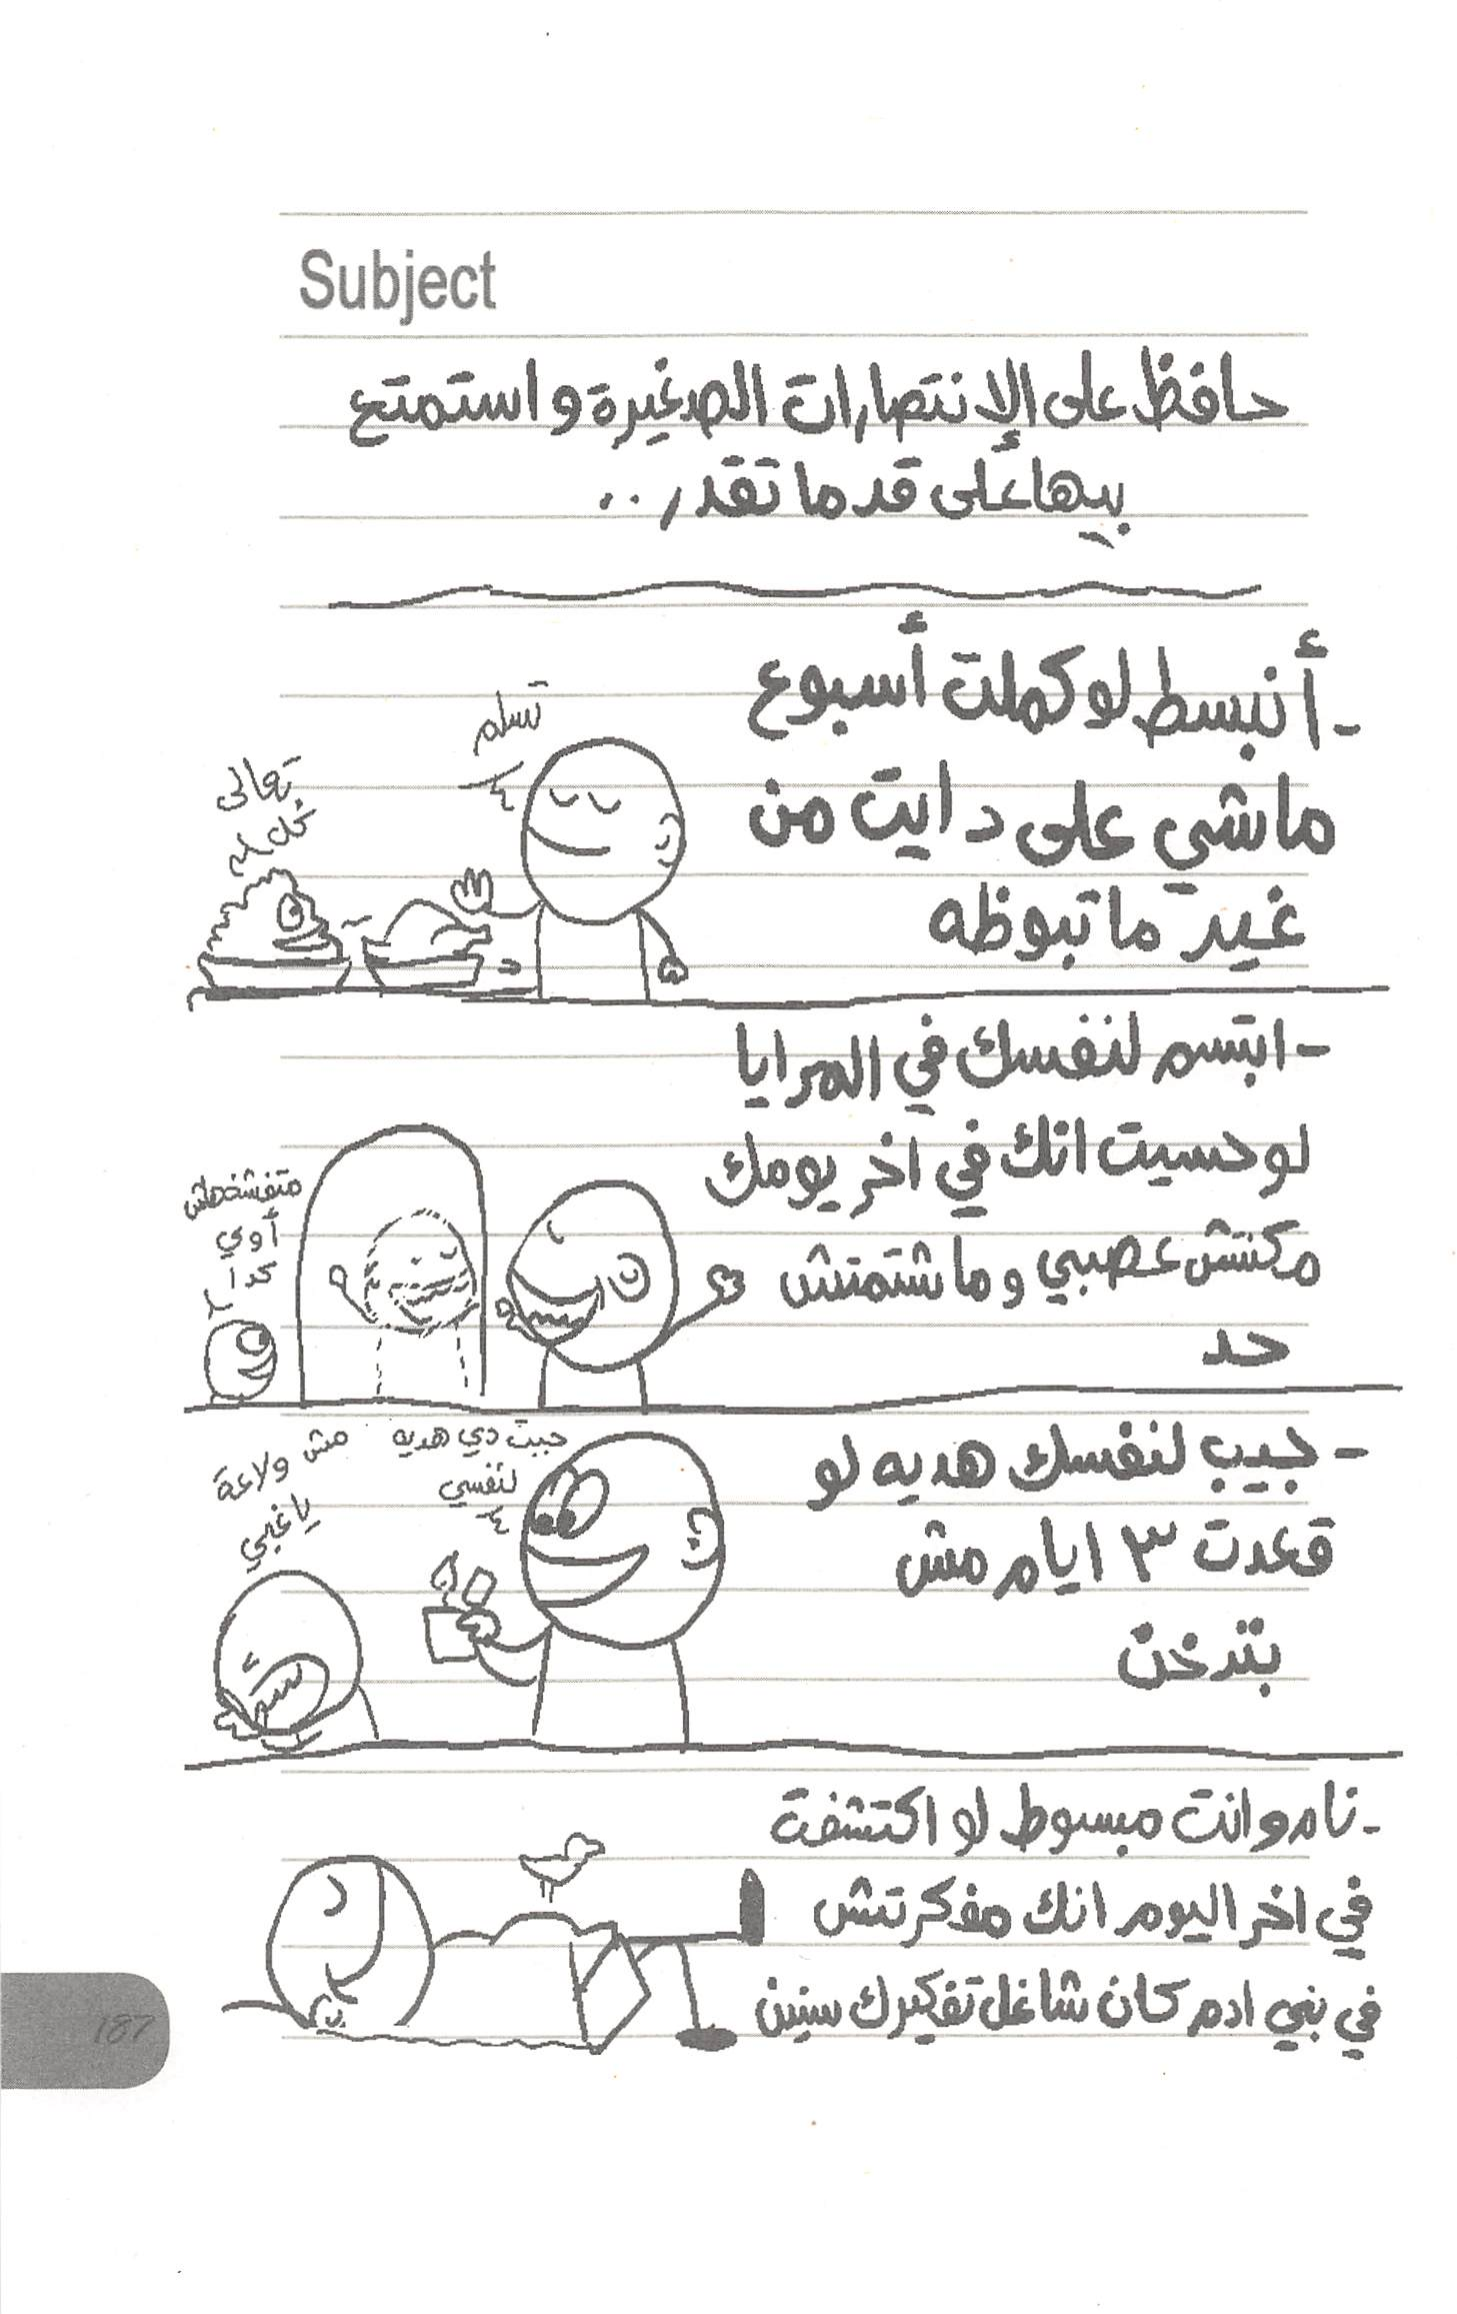 Subject
حافظ على الإنتصارات الصغيرة واستمتع
بيها على قد ما تقدر..
- أنبسط لو كملت أسبوع
ماشي على دايت من
غير ما تبوظه
تسلم
تعالى
- ابتسم لنفسك في المرايا
لو حسيت انك في اخر يومك
مكنتش عصبي وما شتمتش
حد
متفشخهاش
أوي
كدا
- جيب لنفسك هديه لو
قعدت ٣ ايام مش
بتدخن
جبت دي هديه
لنفسي
مش ولاعة
يا غبي
- نام وانت مبسوط لو اكتشفت
في اخر اليوم انك مفكرتش
في بني ادم كان شاغل تفكيرك سنين
187